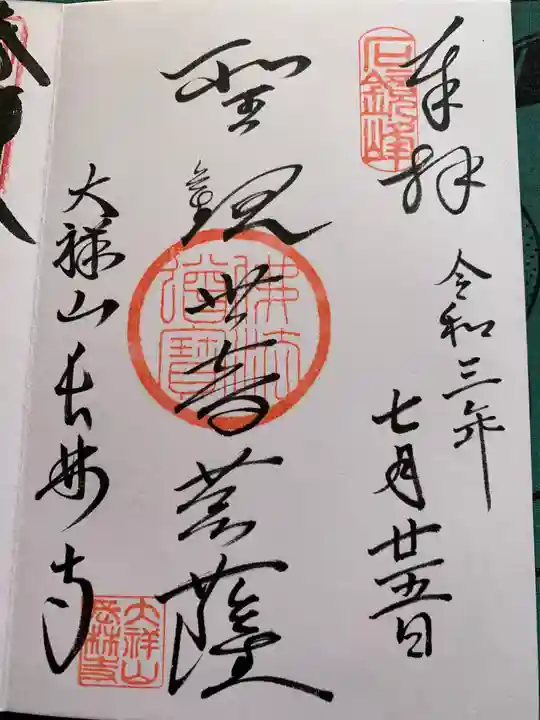 奉拝
令和三年
七月廿五日
聖観世音菩薩
佛法僧寳
大祥山長林寺
大祥山
長林寺